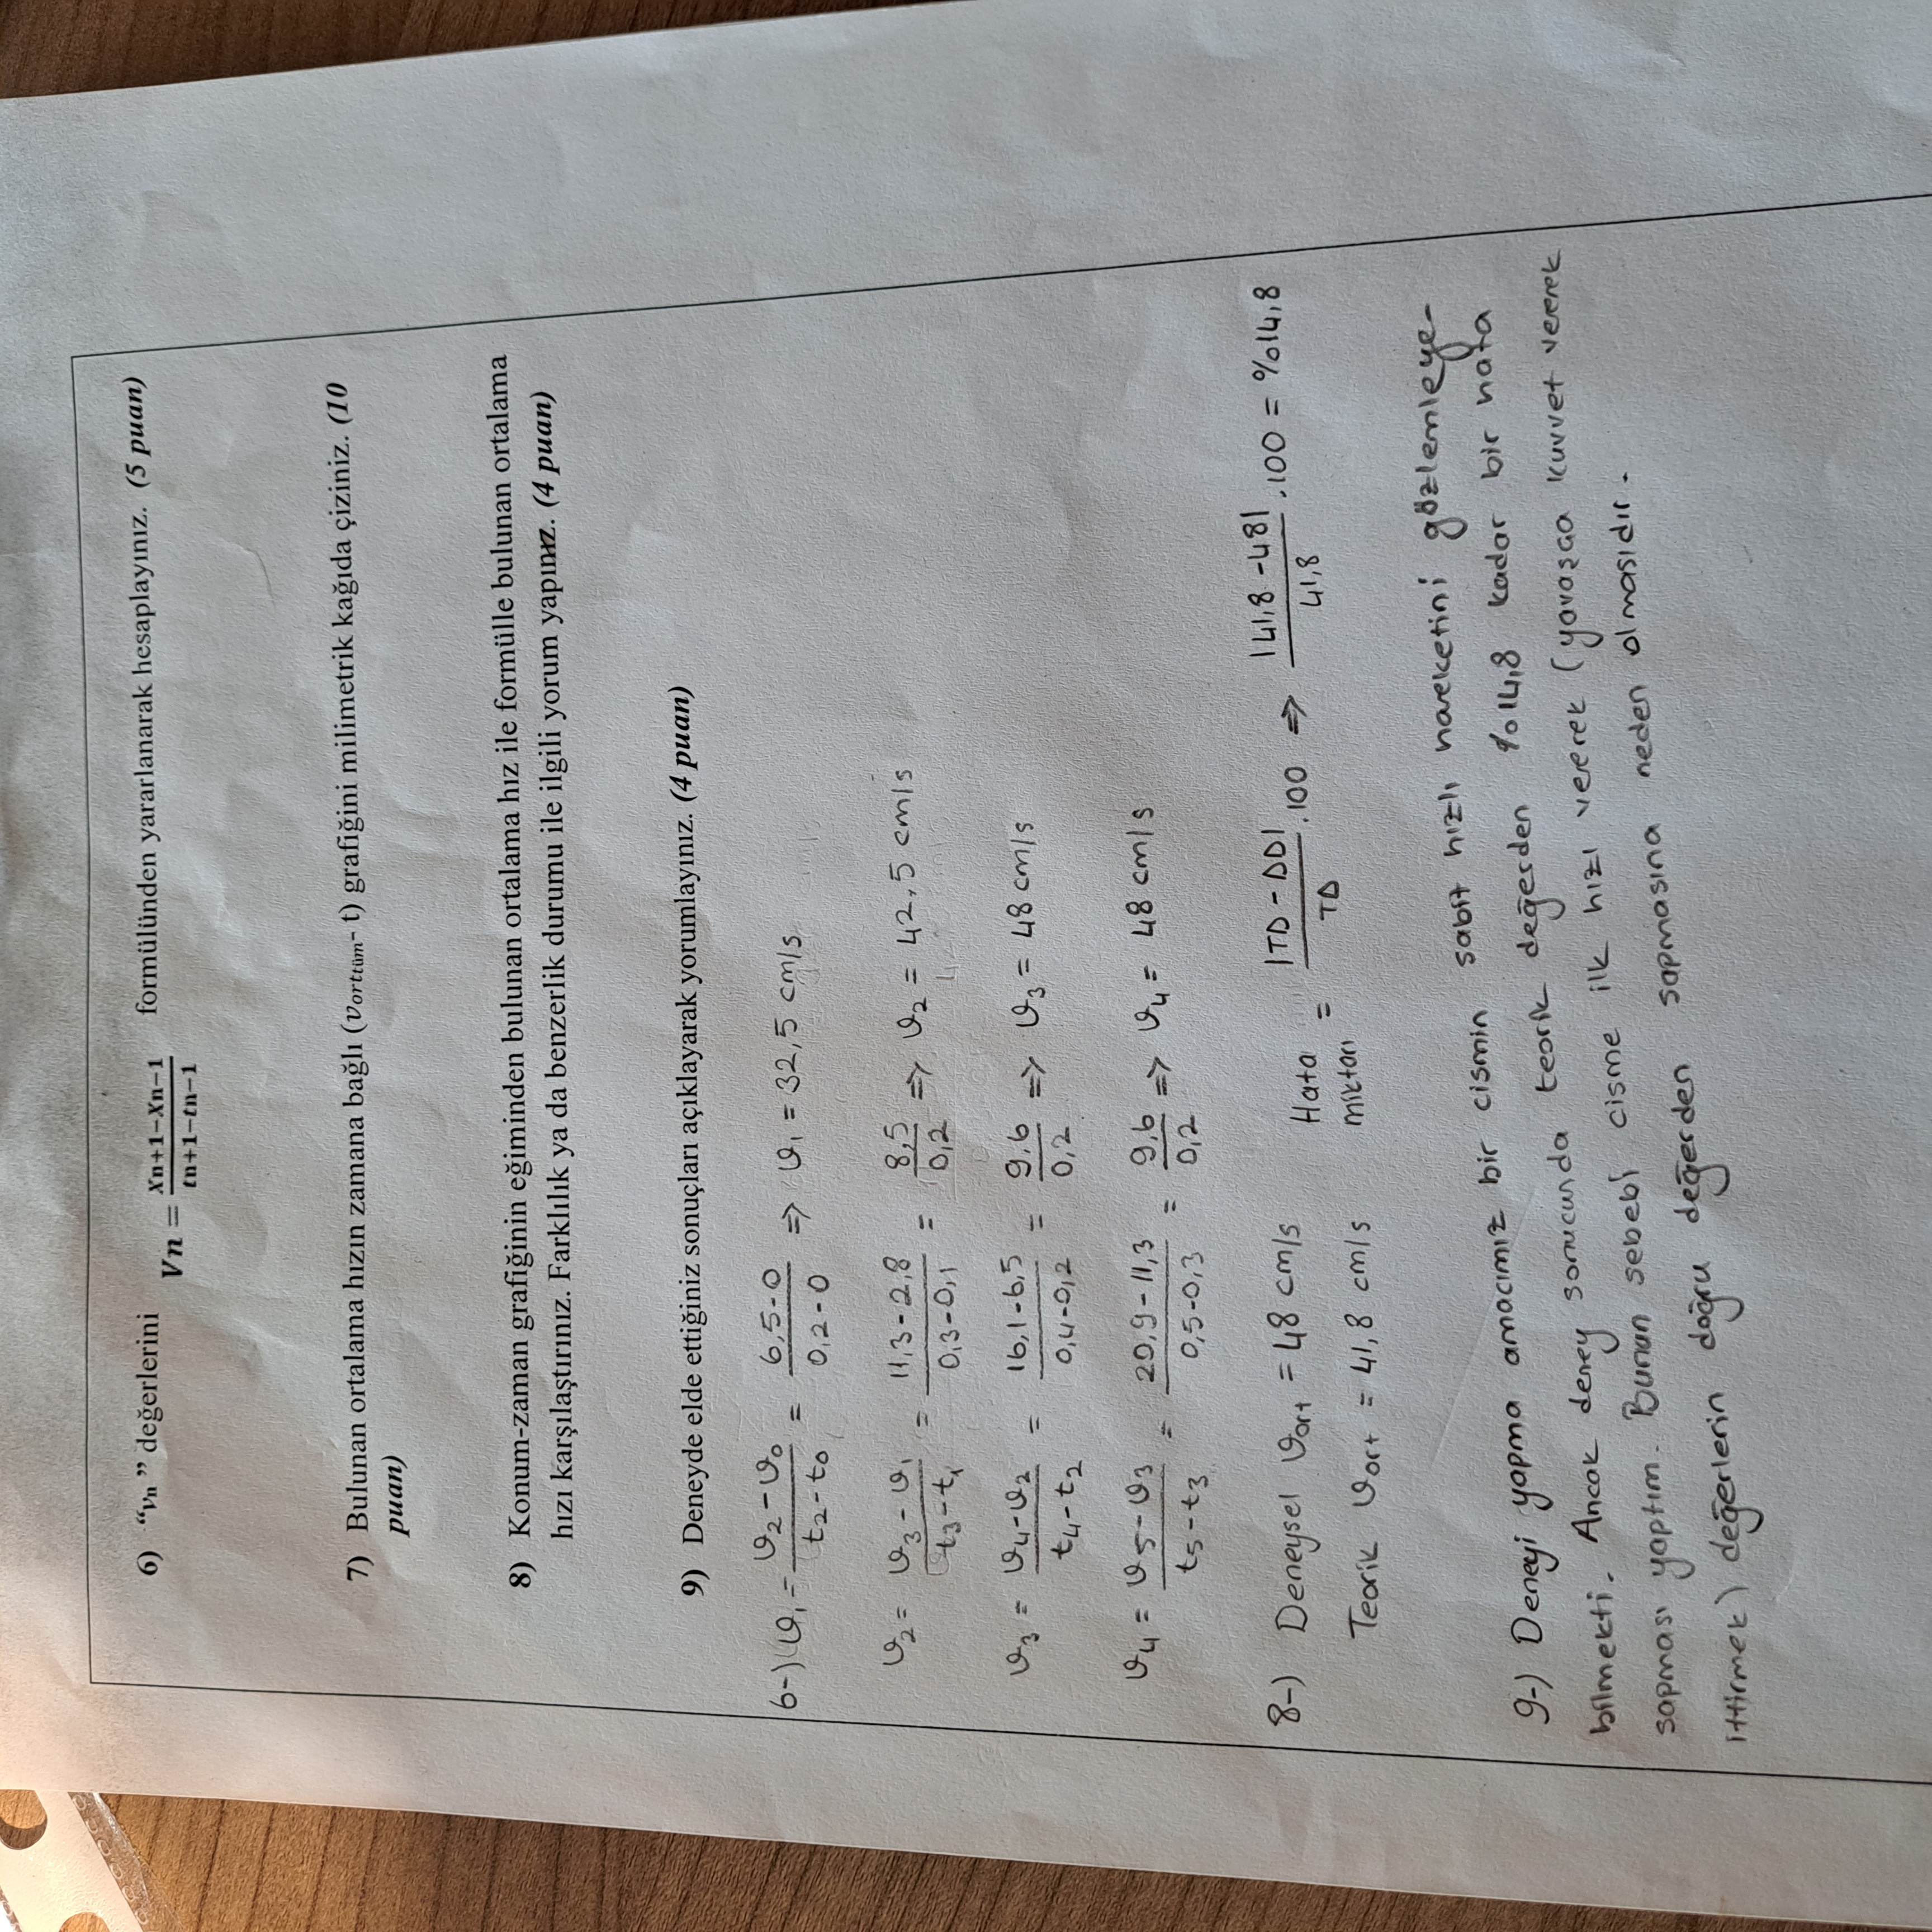 6) “vn ” değerlerini Vn = Xn+1−Xn−1 / tn+1−tn−1 formülünden yararlanarak hesaplayınız. (5 puan)
7) Bulunan ortalama hızın zamana bağlı (vorttüm- t) grafiğini milimetrik kağıda çiziniz. (10
puan)
8) Konum-zaman grafiğinin eğiminden bulunan ortalama hız ile formülle bulunan ortalama
hızı karşılaştırınız. Farklılık ya da benzerlik durumu ile ilgili yorum yapınız. (4 puan)
9) Deneyde elde ettiğiniz sonuçları açıklayarak yorumlayınız. (4 puan)
6-) ϑ₁ = ϑ₂-ϑ₀ / t₂-t₀ = 6,5-0 / 0,2-0 ⇒ ϑ₁ = 32,5 cm/s
ϑ₂ = ϑ₃-ϑ₁ / t₃-t₁ = 11,3-2,8 / 0,3-0,1 = 8,5 / 0,2 ⇒ ϑ₂ = 42,5 cm/s
ϑ₃ = ϑ₄-ϑ₂ / t₄-t₂ = 16,1-6,5 / 0,4-0,2 = 9,6 / 0,2 ⇒ ϑ₃ = 48 cm/s
ϑ₄ = ϑ₅-ϑ₃ / t₅-t₃ = 20,9-11,3 / 0,5-0,3 = 9,6 / 0,2 ⇒ ϑ₄ = 48 cm/s
8-) Deneysel ϑort = 48 cm/s
Teorik ϑort = 41,8 cm/s
Hata miktarı = |TD-DD| / TD .100 ⇒ |41,8-48| / 41,8 .100 = %14,8
9-) Deneyi yapma amacımız bir cismin sabit hızlı hareketini gözlemleye-
bilmekti. Ancak deney sonucunda teorik değerden %14,8 kadar bir hata
sapması yaptım. Bunun sebebi cisme ilk hızı vererek (yavaşça kuvvet vererek
ittirmek) değerlerin doğru değerden sapmasına neden olmasıdır.